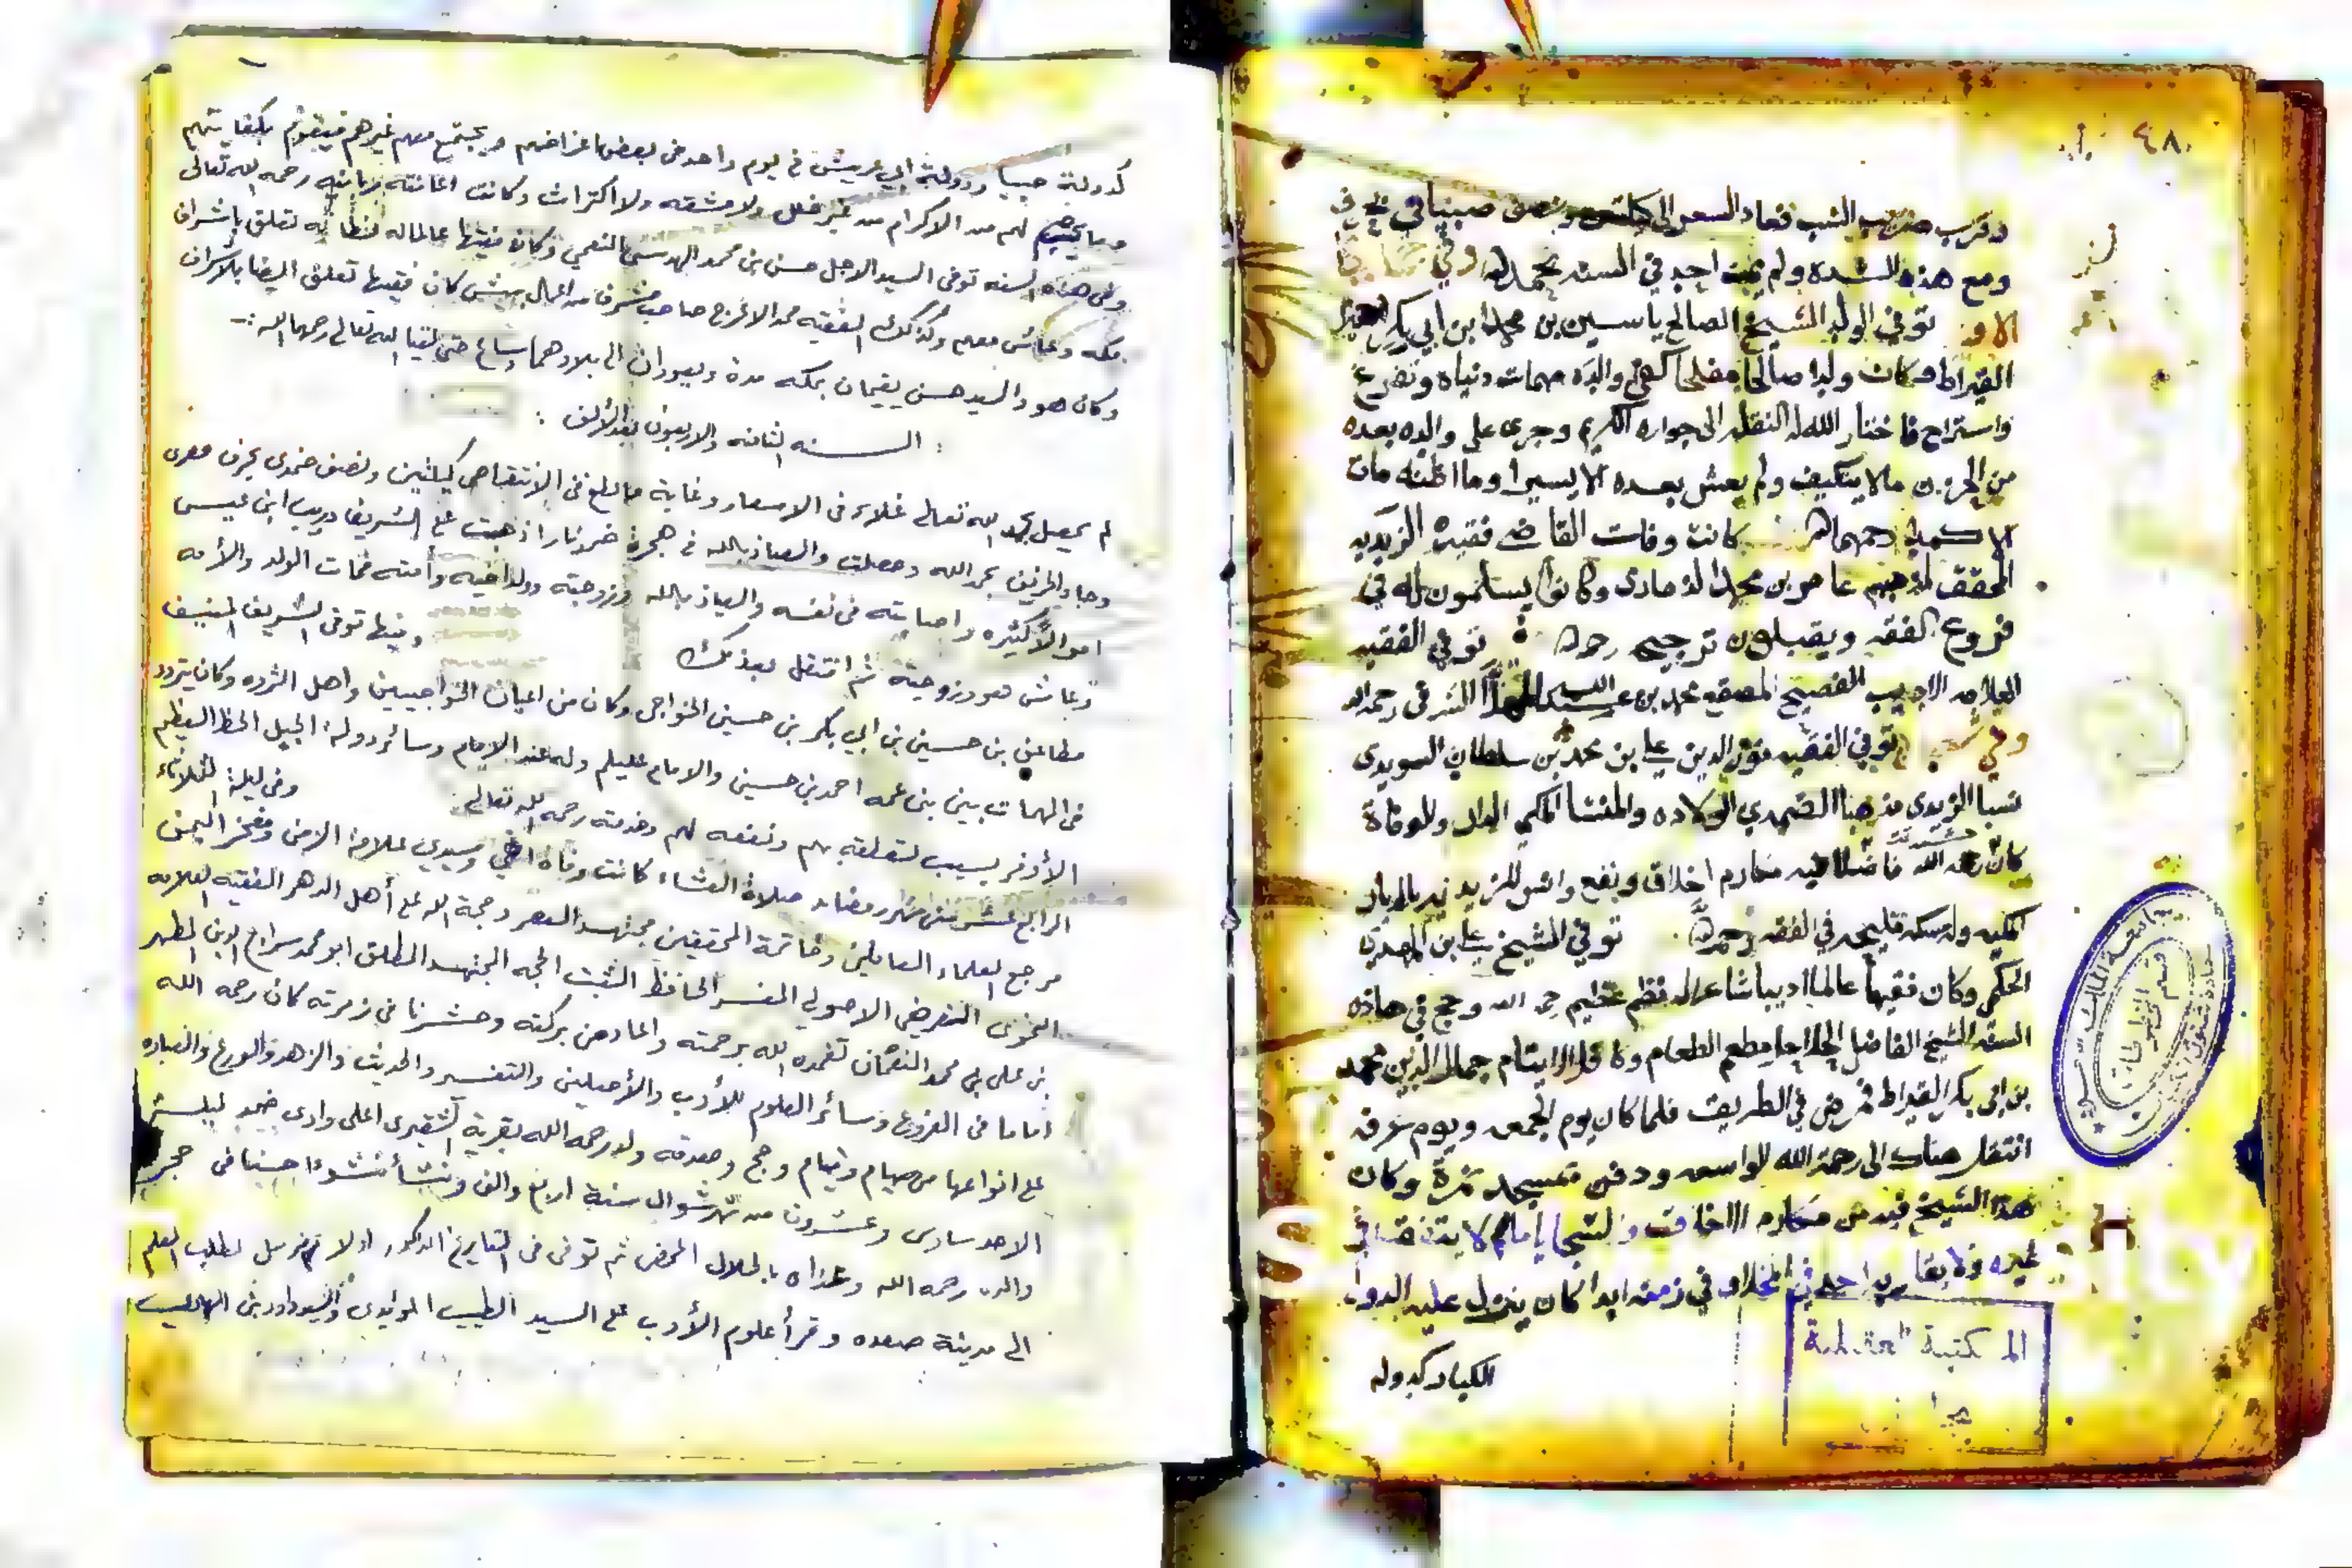 ٤٨
وقرب ضريب الشب فعاد السعر الى كيلتين ونصف صبياني بحرف
ومع هذه الشدة ولم يمت احد في السنة بحمد الله وفي جمادى
الاو توفي الولد الشيخ الصالح ياسين بن محمد ابن ابي بكر
القيراط وكان ولدا صالحا مفلحا كفى والده مهمات دنياه وتفرغ
واستراح فاختار الله له النقلة الى جواره الكريم وجرى على والده بعده
من الحزن مالا يتكيف ولم يعش بعده الا يسيرا وما اظنه مات
الا كمدا رحمهما الله كانت وفات القاضي فقيه الزيديه
المحقق لمذهبهم عامر بن محمد الذمارى وكانوا يسلمون له في
فروع الفقه ويقبلون ترجيحه رحمه الله توفي الفقيه
العلامه الاديب الفصيح المصقع محمد بن عبد الله الشرفى رحمه الله
وفي توفي الفقيه نور الدين علي بن محمد بن سلطان السويدى
نسبا الزيدى مذهبا الضمدي الولاده والمنشا المكي الدار والوفاة
كان رحمه الله فاضلا فيه مكارم اخلاق ونفع وانس للزيديه بالديار
المكيه وله مسكة في الفقه رحمه الله توفي الشيخ علي بن المهدي
الحكمي وكان فقيها عالما اديبا شاعرا له نظم عظيم رحمه الله وحج في هاذه
السنة الشيخ الفاضل مطعم الطعام وكافل الايتام جمال الدين محمد
بن ابى بكر القيراط فمرض في الطريق فلما كان يوم الجمعه ويوم عرفه
انتقل هناك الى رحمة الله الواسعه ودفن بمسجد نمرة وكان
هذا الشيخ فيه من مكارم الاخلاق والشجايا مالا يتفق في
غيره ولا يقاربه احد في المخلاف في زمنه ابدا كان ينزل عليه الدول
الكبار كدوله
المكتبة العقيلية
كدولة صبيا ودولة ابي عريش في يوم واحد في بعض اغراضهم ويجتمع معهم غيرهم فيقوم بكفايتهم
وما يجب لهم من الاكرام من غير خلل ولا مشقه ولا اكتراث وكانت اعانته ربانيه رحمه الله تعالى
وفى هذه السنه توفى السيد الاجل حسن بن محمد المهدي النعمي وكان فقيها عالما له تعلق باشراف
مكه وعاش معهم وكذلك الفقيه محمد الاعرج صاحب مشرف من اعمال بيش كان فقيها تعلق ايضا بالاشراف
وكان هو والسيد حسن يقيمان بمكه مدة ويعودان الى بلادهما حتى لقيا الله تعالى رحمهما الله
: السنه الثامنه والاربعون بعد الألف :
لم يحصل بحمد الله تعالى غلاء فى الاسعار وغاية ما بلغ فى الانتقاص كيلتين ونصف ضمدى بحرف
وجاد الخريف بحمد الله وحصلت والعياذ بالله فى هجرة ضمد نار اذهبت على الشريف دريب ابن عيسى
اموالا كثيره واصابته فى نفسه والعياذ بالله وزوجته وولد اخيه وأمته فمات الولد والأمه
وعاش هو وزوجته ثم انتقل بعد ذلك وفيها توفى الشريف المنيف
مطاعن بن حسين بن ابي بكر بن حسين الخواجى وكان من اعيان الخواجيين واهل الثروه وكان يتردد
فى المهمات بين بنى عمه احمد بن حسين والامام عليلم وله عند الامام وسائر دولة الجبل الحظ العظيم
الأوفر بسبب تعلقه بهم ونفعه لهم وخدمته رحمه الله تعالى وفى ليلة الثلاثاء
الرابع عشر من شهر رمضان صلاة العشاء كانت وفاة اخي وسيدي علامة الزمن ومفخر اليمن
مرجع العلماء العاملين وخاتمة المحققين مجتهد العصر وحجة الله على أهل الدهر الفقيه العلامه
النحوى الفرضى الاصولى المفسر الحافظ الثبت الحجه المجتهد المطلق ابو محمد سراج الدين المطهر
بن على بن محمد النعمان تغمده الله برحمته واعاد من بركته وحشرنا في زمرته كان رحمه الله
اماما فى الفروع وسائر العلوم للأدب والأصلين والتفسير والحديث والزهد والورع والعباده
على انواعها من صيام وقيام وحج وصدقه ولد رحمه الله بقرية الشقيرى اعلى وادى ضمد ليلة
الاحد سادس وعشرون من شهر شوال سنة اربع والف ونشأ نشوءا حسنا فى حجر
والده رحمه الله وغذاه بالحلال المحض ثم توفى فى التاريخ المذكور اولا ثم رحل لطلب العلم
الى مدينة صعده وقرأ علوم الأدب على السيد الطيب والسيد داود بن الهادى